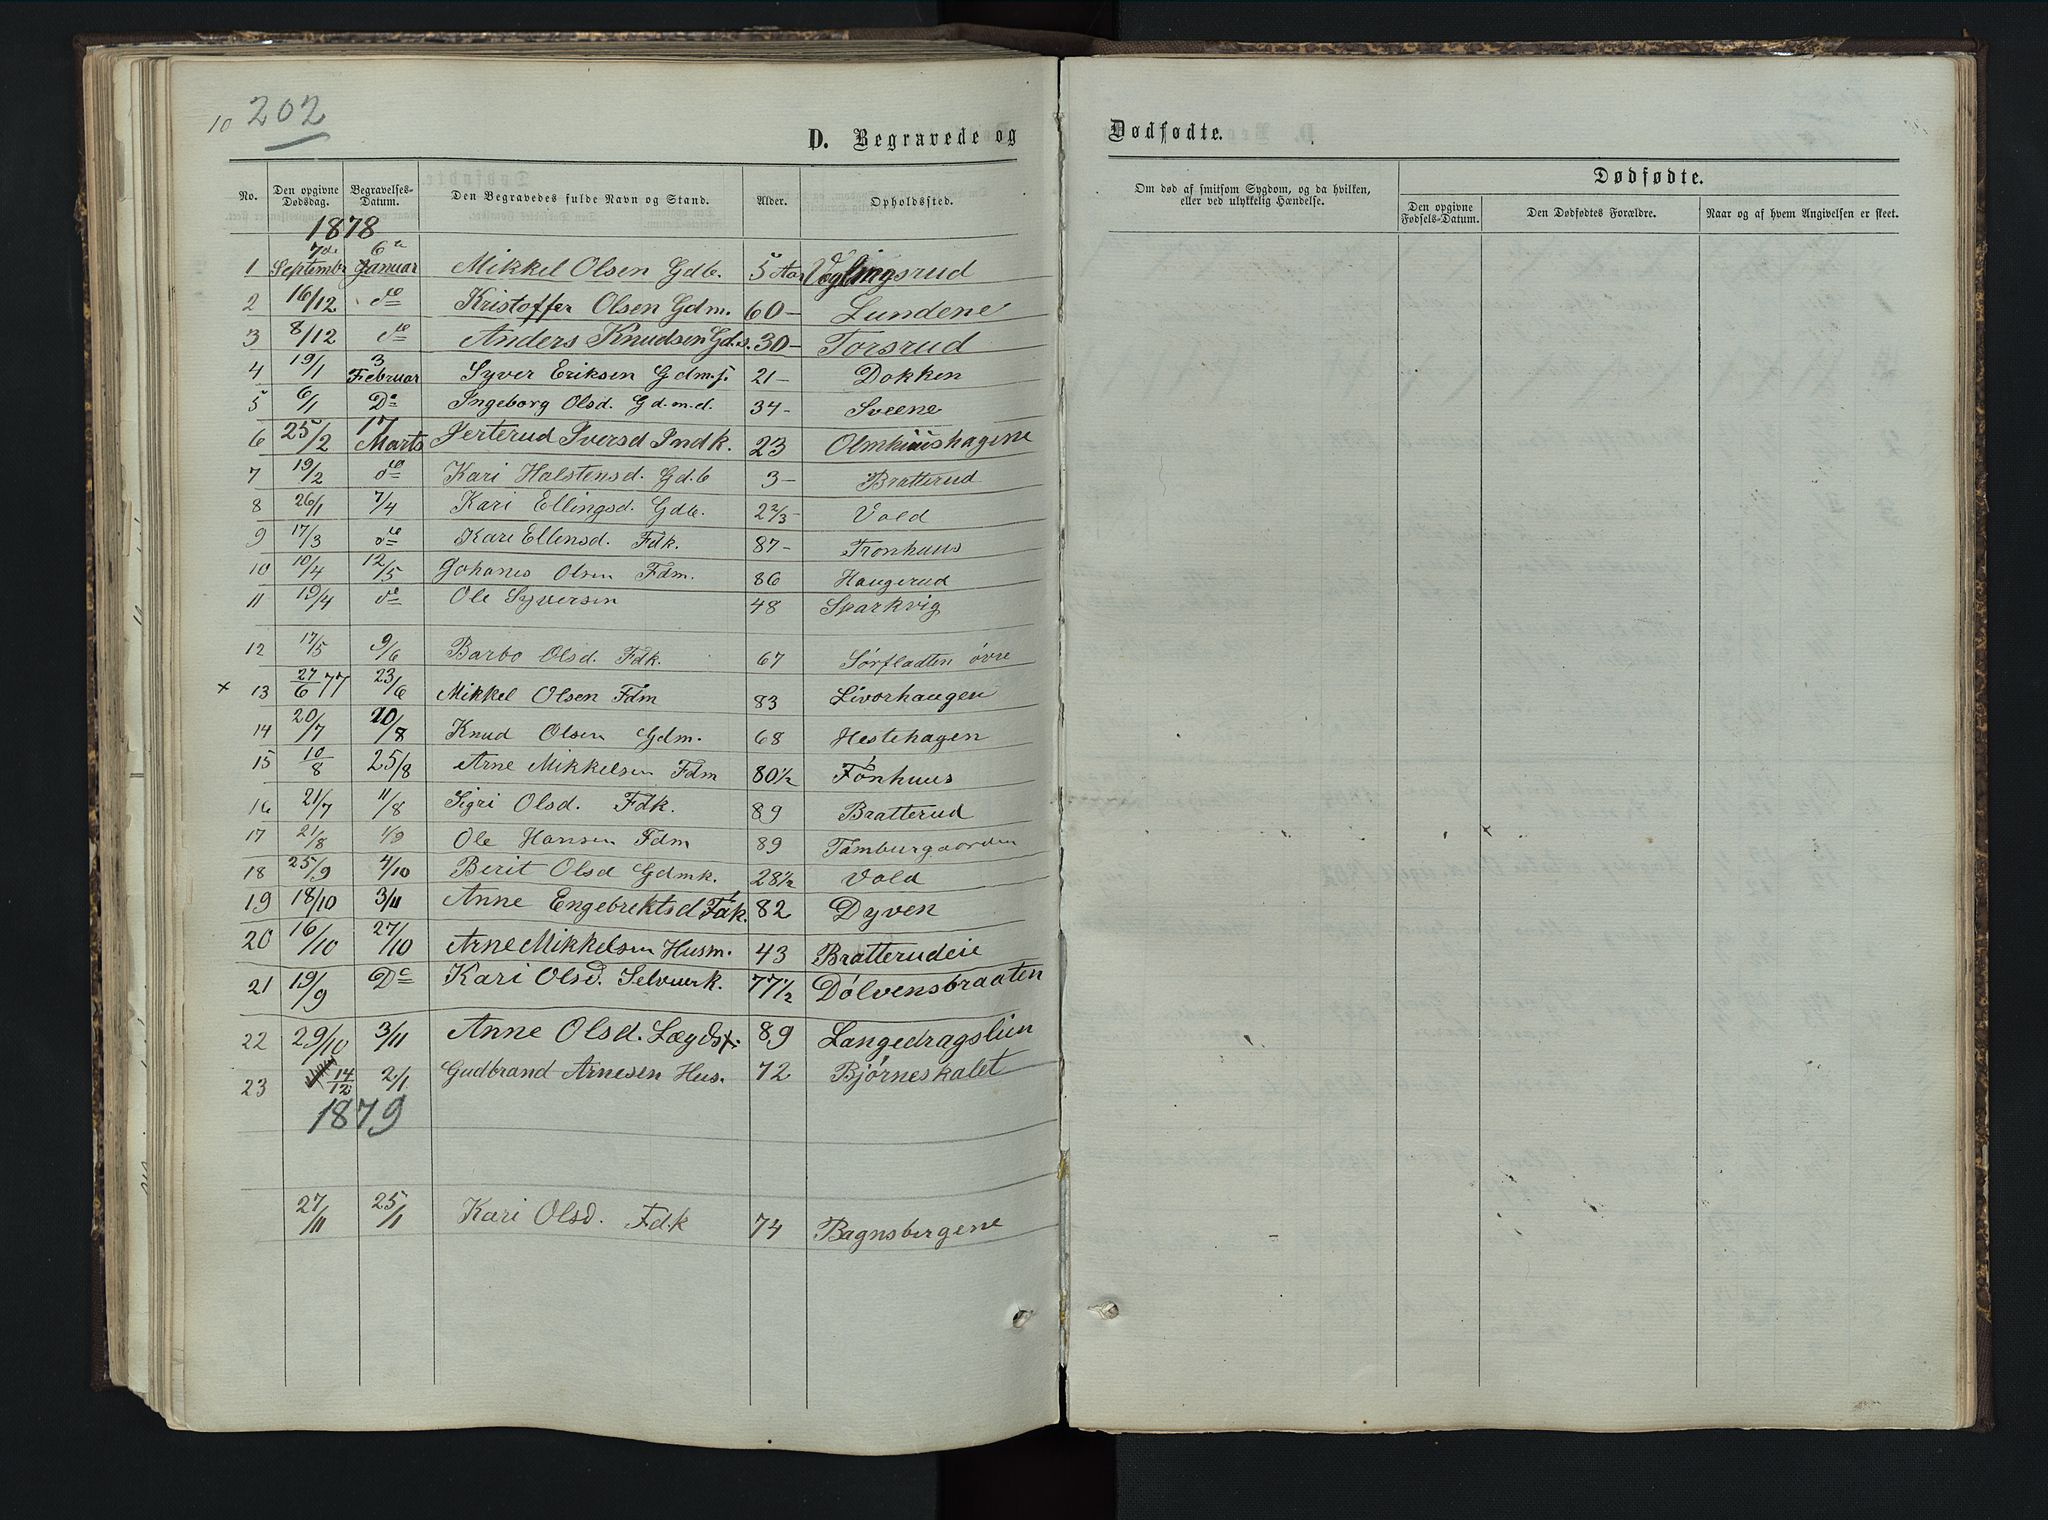 10 202
D. Begravede og Dødfødte.
No. Den opgivne Dødsdag. Begravelses-Datum. Den Begravedes fulde Navn og Stand. Alder. Opholdssted.
Om død af smitsom Sygdom, og da hvilken, eller ved ulykkelig Hændelse.
Dødfødte.
Den opgivne Fødsels-Datum. Den Dødfødtes Forældre. Naar og af hvem Angivelsen er skeet.
1878
1 7de Septembr 6te Januar Mikkel Olsen Gdb. 5 Aar Vøglingsrud
2 16/12 do Kristoffer Olsen Gdm. 60- Lundene
3 8/12 do Anders Knudsen Gd.s. 30- Torsrud
4 19/1 3 Februar Syver Eriksen Gdm.f. 21- Dokken
5 6/1 Do Ingeborg Olsd. Gd.m.d. 34- Sveene
6 25/2 17 Marts Jerterud Iversd Indk. 23 Olmhuushagene
7 19/2 do Kari Halstensd. Gd.b 3- Bratterud
8 26/1 7/4 Kari Ellingsd. Gdb. 2 2/3- Vold
9 17/3 do Kari Ellensd. Fdk. 87- Tronhuus
10 10/4 12/5 Johanes Olsen Fdm. 86 Haugerud
11 19/4 do Ole Syversen 48 Sparkvig
12 17/5 9/6 Barbo Olsd. Fdk. 67 Sørfladten øvre
x 13 27/6 77 23/6 Mikkel Olsen Fdm 83 Livorhaugen
14 20/7 20/8 Knud Olsen Gdm. 68 Hestehagen
15 10/8 25/8 Arne Mikkelsen Fdm 80 1/2 Fønhuus
16 21/7 11/8 Sigri Olsd. Fdk. 89 Bratterud
17 21/8 1/9 Ole Hansen Fdm 89 Tamburgaarden
18 25/9 4/10 Berit Olsd Gdmk. 28 1/2 Vold
19 18/10 3/11 Anne Engebrektsd Fdk. 82 Dyven
20 16/10 27/10 Arne Mikkelsen Husm. 43 Bratterudeie
21 19/9 Do Kari Olsd. Selvuerk. 77 1/2 Dølvensbraaten
22 29/10 3/11 Anne Olsd. Lægdsl. 89 Langedragslien
23 14/12 2/1 Gudbrand Arnesen Hus. 72 Bjørneskalet
1879
27/11 25/1 Kari Olsd. Fdk 74 Bagnsbergene